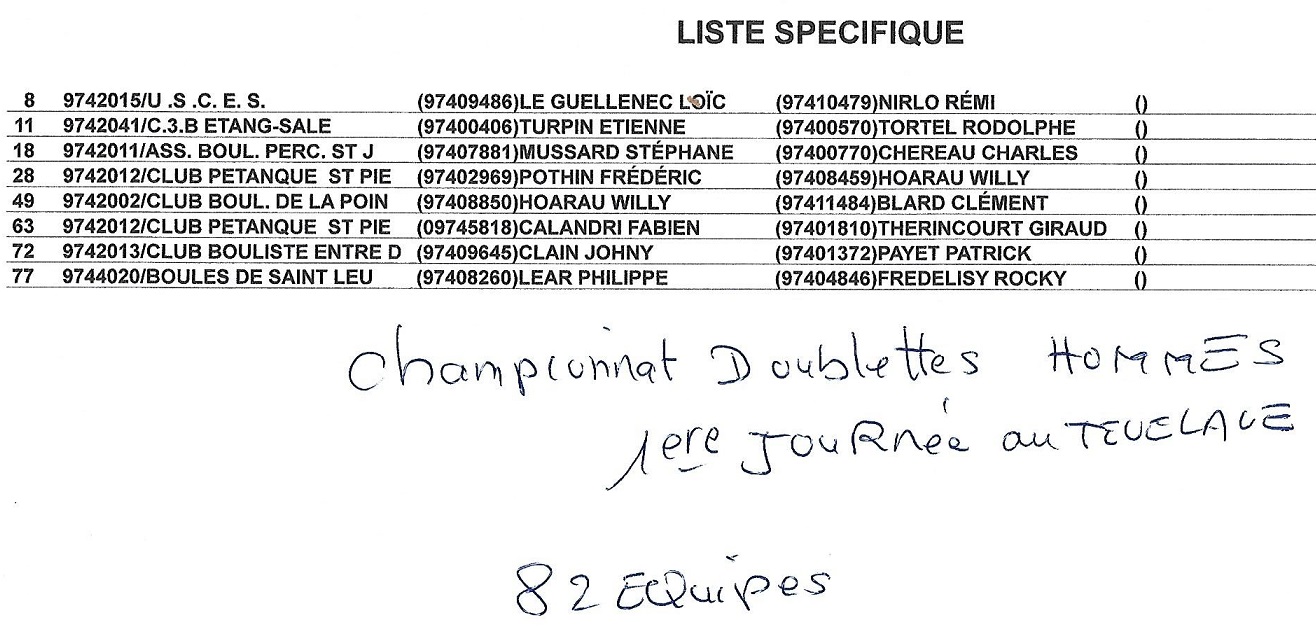 LISTE SPECIFIQUE
8 9742015/U .S .C. E. S. (97409486)LE GUELLENEC LOÏC (97410479)NIRLO RÉMI ()
11 9742041/C.3.B ETANG-SALE (97400406)TURPIN ETIENNE (97400570)TORTEL RODOLPHE ()
18 9742011/ASS. BOUL. PERC. ST J (97407881)MUSSARD STÉPHANE (97400770)CHEREAU CHARLES ()
28 9742012/CLUB PETANQUE ST PIE (97402969)POTHIN FRÉDÉRIC (97408459)HOARAU WILLY ()
49 9742002/CLUB BOUL. DE LA POIN (97408850)HOARAU WILLY (97411484)BLARD CLÉMENT ()
63 9742012/CLUB PETANQUE ST PIE (09745818)CALANDRI FABIEN (97401810)THERINCOURT GIRAUD ()
72 9742013/CLUB BOULISTE ENTRE D (97409645)CLAIN JOHNY (97401372)PAYET PATRICK ()
77 9744020/BOULES DE SAINT LEU (97408260)LEAR PHILIPPE (97404846)FREDELISY ROCKY ()
Championnat Doublettes HOMMES
1ere JOURnée au TEVELAVE
82 EQuipes